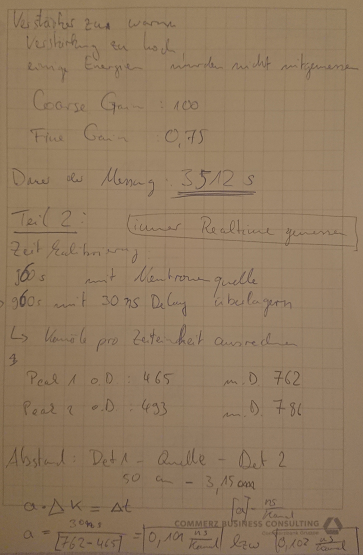 Verstärker zu warm
Verstärkung zu hoch
einige Energien wurden nicht mitgemessen
Coarse Gain : 100
Fine Gain : 0,75
Dauer der Messung : 3512 s
Teil 2 : immer Realtime gemessen
Zeitkalibrierung
960s mit Neutronenquelle
960s mit 30 ns Delay überlagern
↳ Kanäle pro Zeiteinheit ausrechnen
Peak 1 o.D. : 465 m.D 762
Peak 2 o.D. : 493 m.D. 786
Abstand : Det 1 - Quelle - Det 2
50 cm - 3,15 cm
a · ΔK = Δt [a] = ns/Kanal
a = 30ns/[762-465] = 0,101 ns/Kanal bzw 0,102 ns/Kanal
COMMERZ BUSINESS CONSULTING